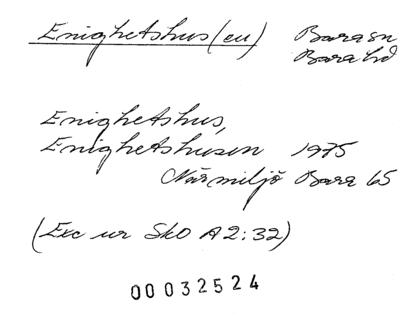 Enighetshus(en) Bara sn
Bara hd
Enighetshus,
Enighetshusen 1975
Närmiljö Bara 65
(Exc ur SkO A2:32)
00032524